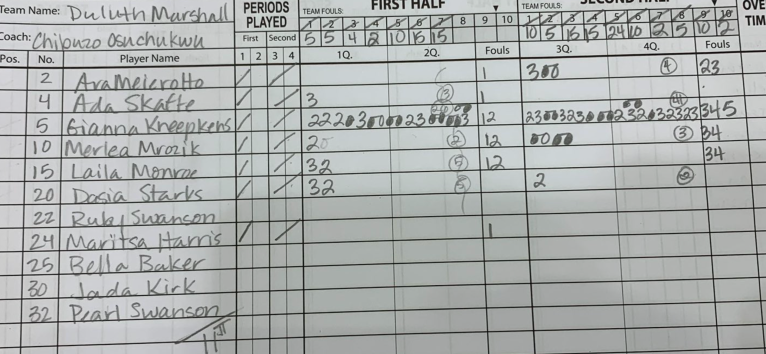 Team Name: Duluth Marshall
PERIODS PLAYED
TEAM FOULS: FIRST HALF
TEAM FOULS:
1 2 3 4 5 6 7 8 9 10
1 2 3 4 5 6 7 8 9 10
Coach: Chibuzo Osuchukwu
First Second
5 5 4 2 10 15 15
10 5 15 15 24 10 2 5 10 2
Pos. No. Player Name 1 2 3 4 1Q. 2Q. Fouls 3Q. 4Q. Fouls
2 Ava Meierotto / / 1 300 4 23
4 Ada Skafte / / 3 3 1
5 Gianna Kneepkens / / 12 345
10 Merlea Mrozik / / 2 2 12 0000 3 34
15 Laila Monroe / / 32 5 12 34
20 Dasia Starks / / 32 5 2 2
22 Ruby Swanson
24 Maritsa Harris / / 1
25 Bella Baker
30 Jada Kirk
32 Pearl Swanson